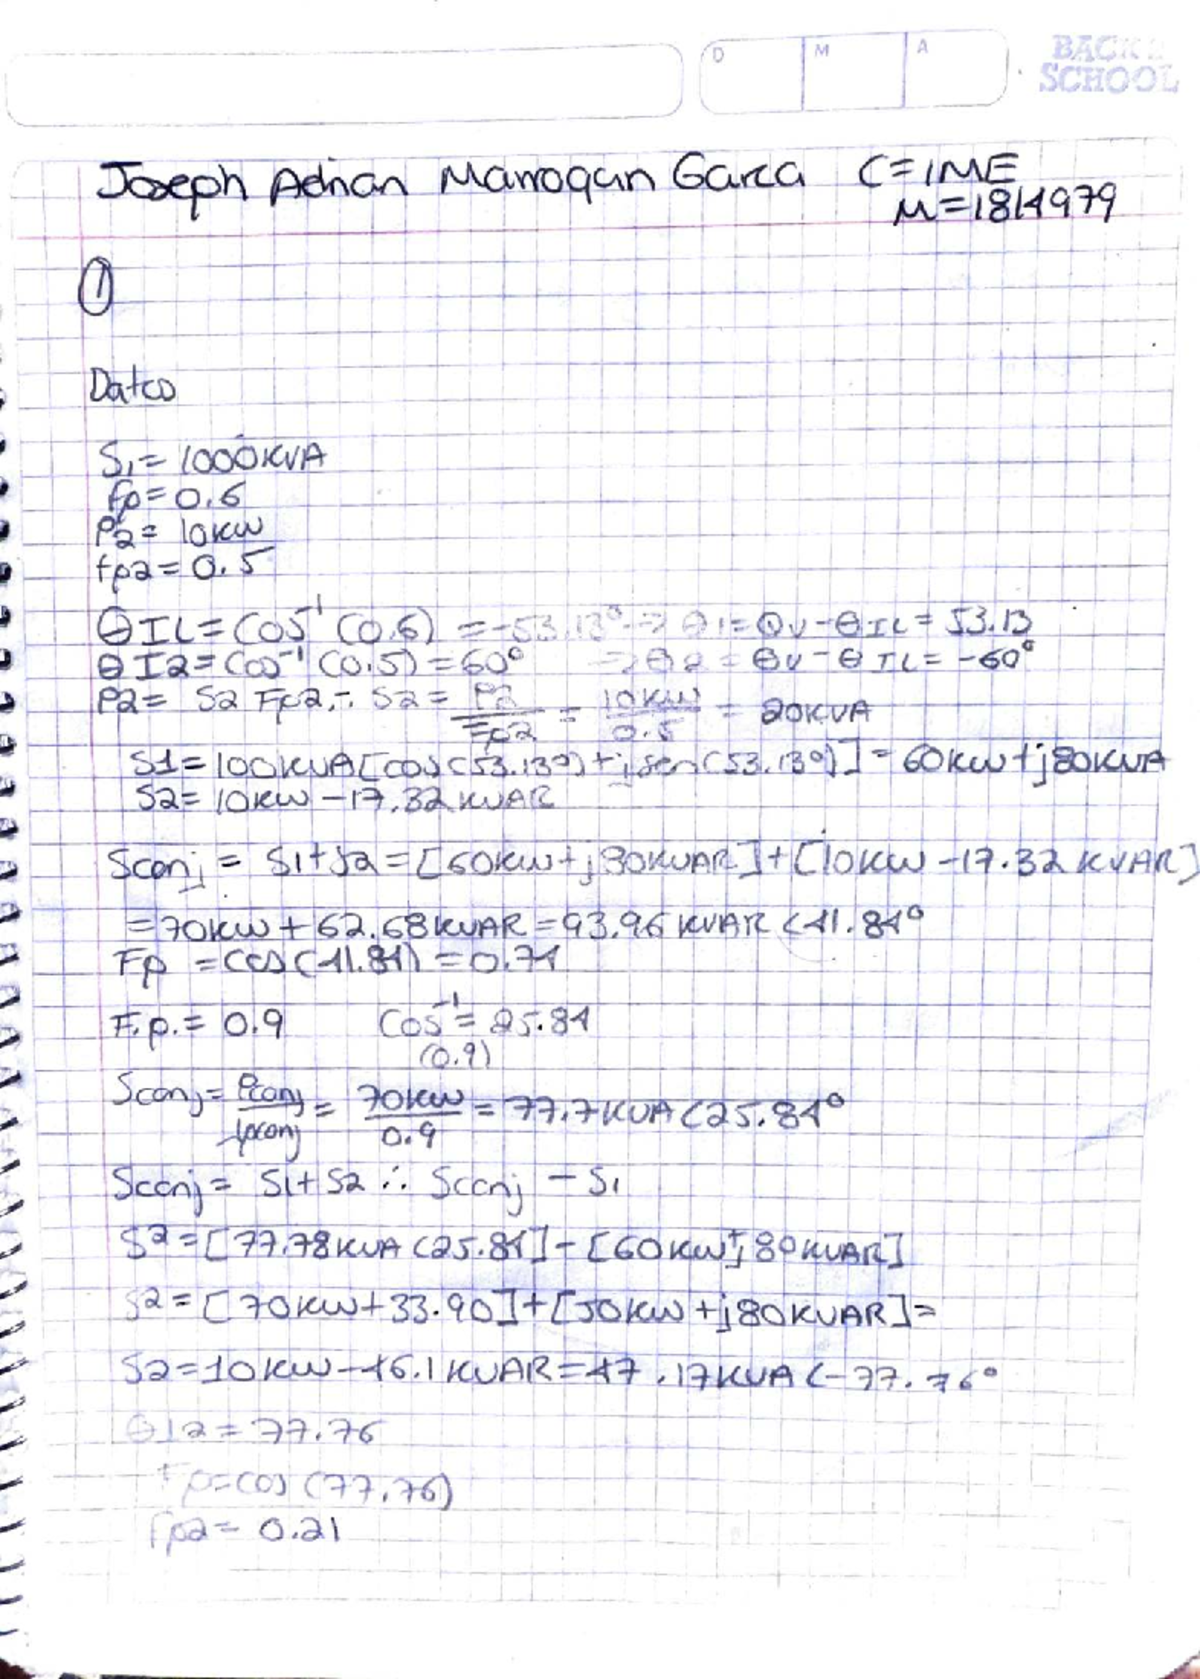 D M A
BACK 2
SCHOOL
Joseph Adrian Marroquin Garcia C=IME
M=1814979
①
Datos
S1= 1000KVA
fp=0.6
P2= 10KW
fp2=0.5
θIL=Cos⁻¹(0.6) =-53.13°→ θ1=θV-θIL=53.13
θI2=Cos⁻¹(0.5)=60° →θ2=θV-θIL=-60°
P2= S2 Fp2,∴ S2= P2/Fp2 = 10KW/0.5 = 20KVA
S1=100KVA[cos(53.13°)+jsen(53.13°)]=60KW+j80KVA
S2=10KW-17.32KVAR
Sconj = S1+S2=[60KW+j80KVAR]+[10KW-17.32KVAR]
=70KW+62.68KVAR=93.96KVAR(41.84°
Fp =cos(41.84)=0.74
F.p.= 0.9 Cos⁻¹= 25.84
(0.9)
Sconj=Pconj/fpconj= 70KW/0.9=77.7KVA(25.84°
Sconj= S1+S2 ∴ Sconj -S1
S2=[77.78KVA(25.84]-[60KW+j80KVAR]
S2=[70KW+33.90]+[50KW+j80KVAR]=
S2=10KW-46.1KVAR=47.17KVA(-77.76°
θI2=77.76
Fp=cos(77.76)
Fp2= 0.21